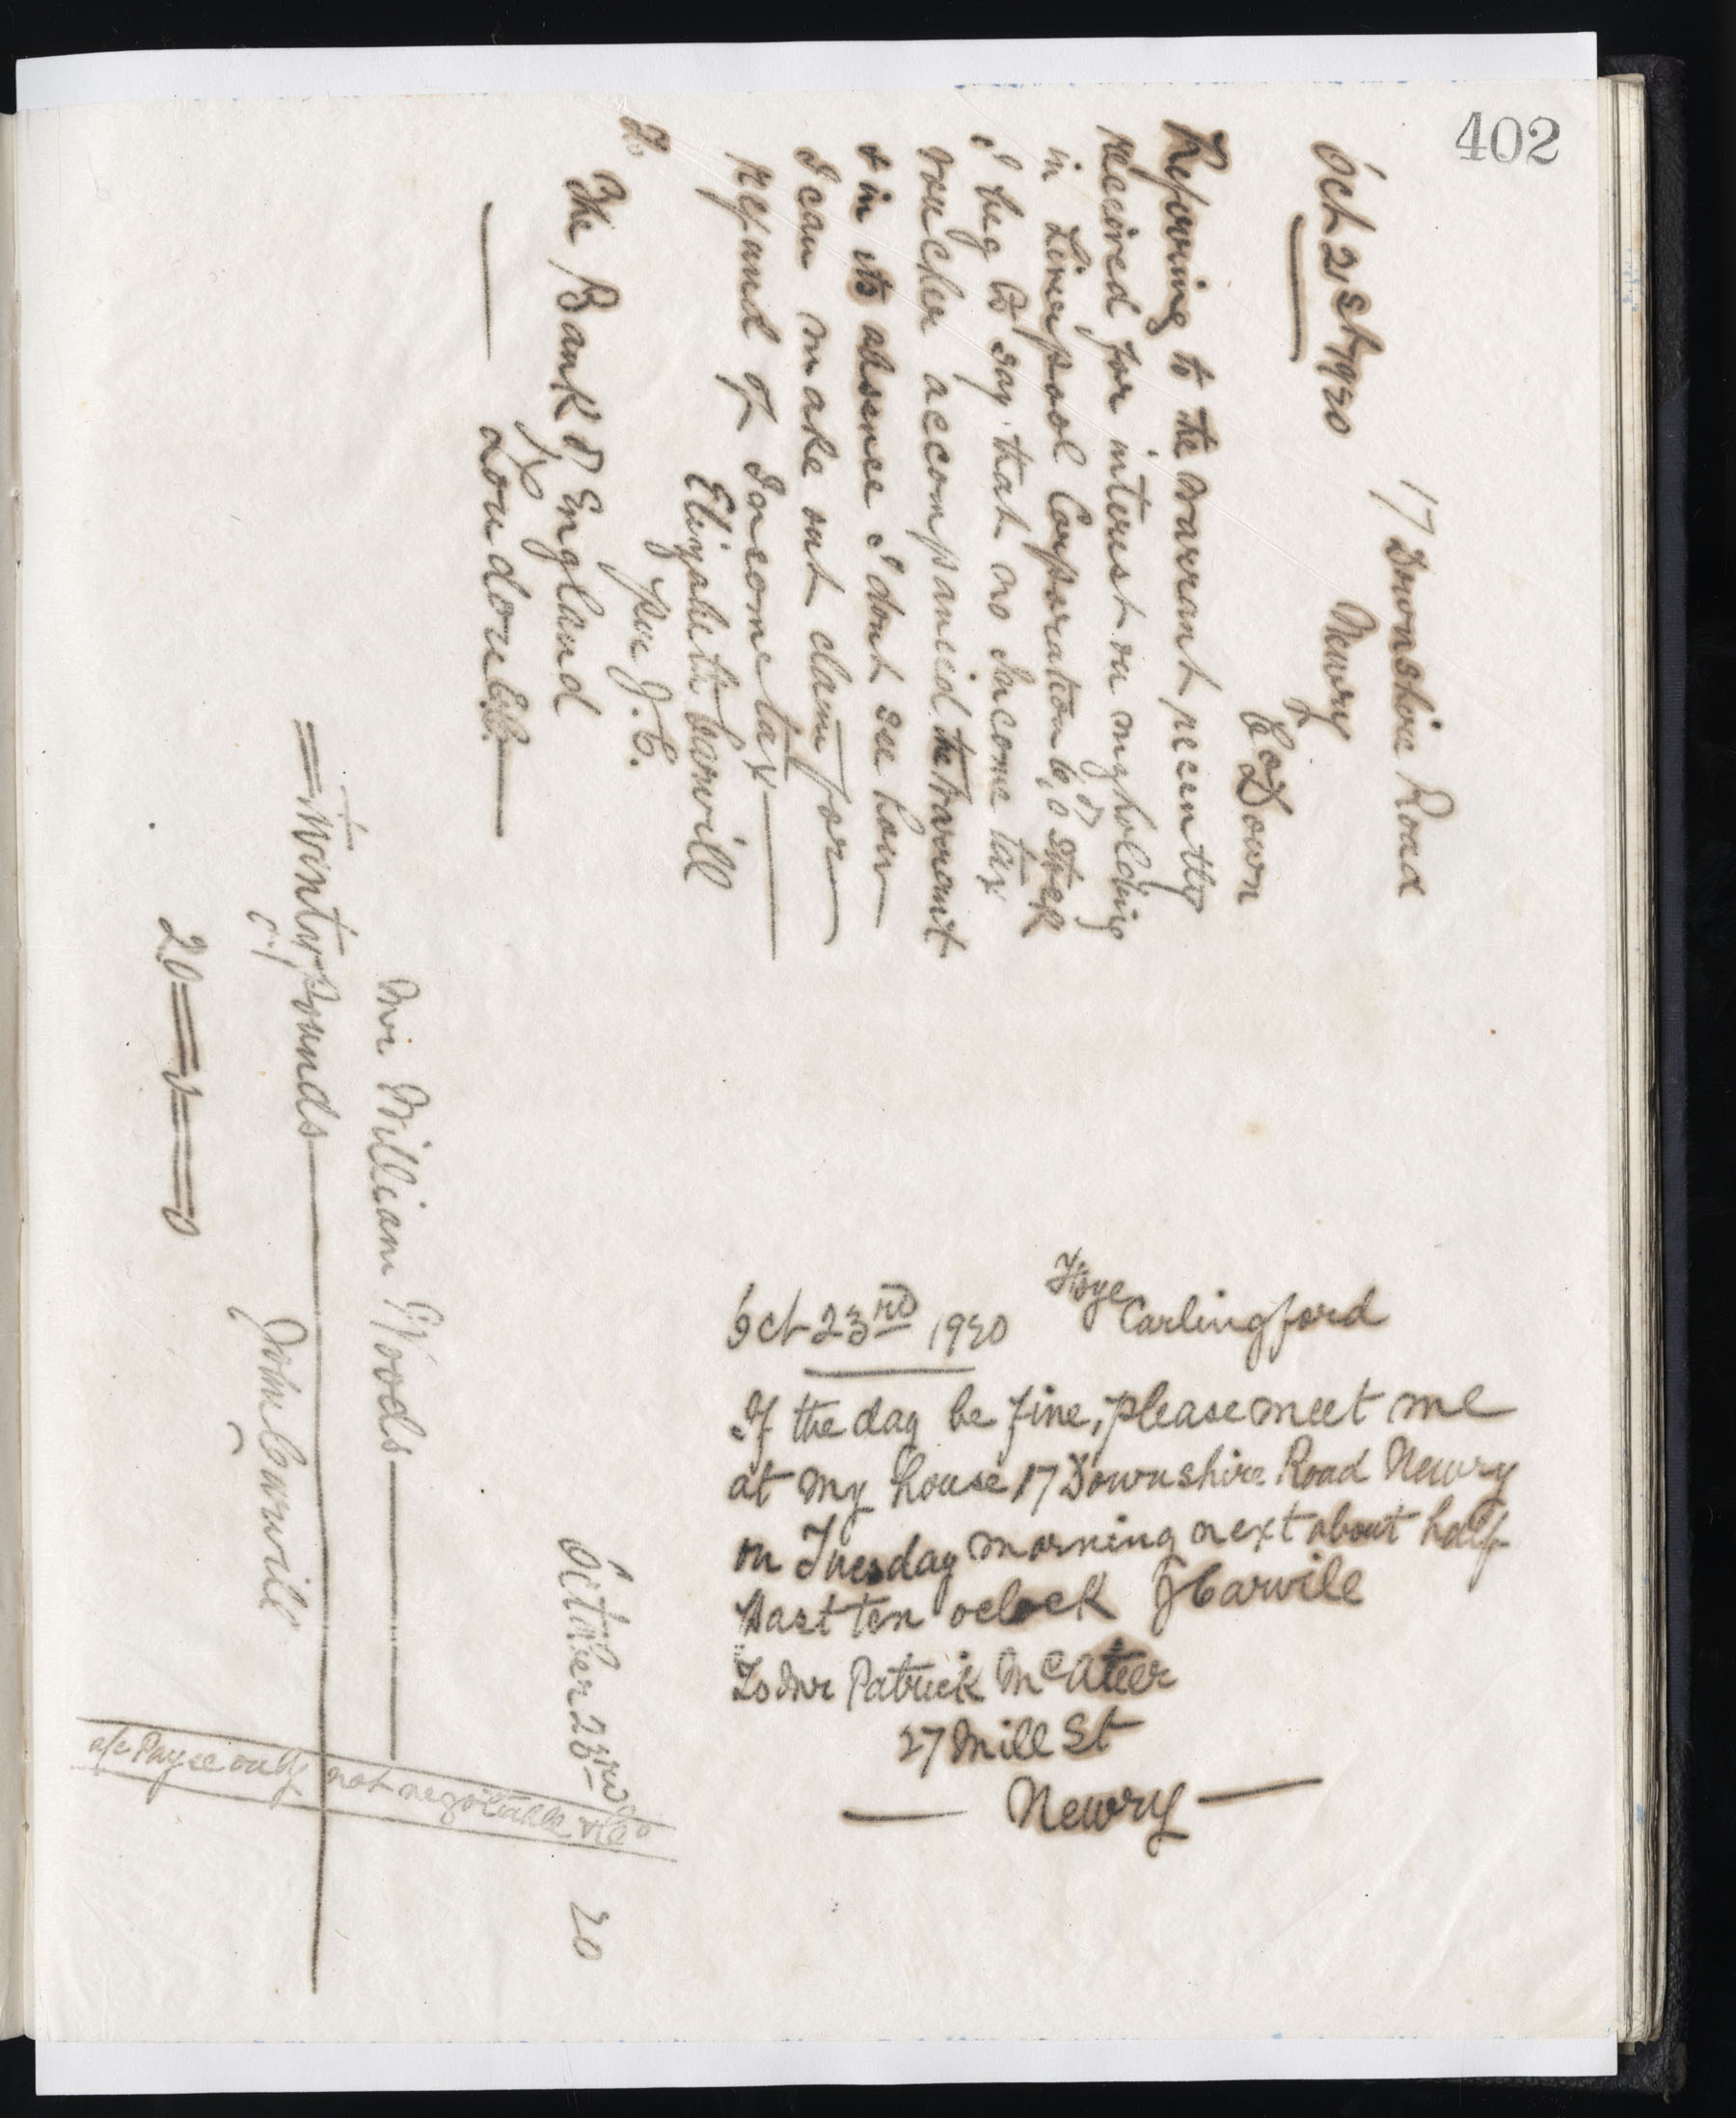 402
17 Downshire Road
Newry
Co Down
Oct 21st 1920
Refering to the warrant recently
received for interest on my holding
in Liverpool Corporation Stock
I beg to say that no Income tax
voucher accompanied the warrant
& in its absence I dont see how
I can make out claim for
refund of Income tax
Elizabeth Carvill
per J. C.
To
The Bank of England
London EC
October 23rd 20
Mr William Woods
Twinty Pounds
John Carvill
20 = 0 = 0
a/c Payee only not negotiable & Co
Oct 23rd 1920 Carlingford
If the day be fine, please meet me
at my house 17 Downshire Road Newry
on Tuesday morning next about half
past ten oclock J Carvill
To Mr Patrick McAteer
27 Mill St
Newry